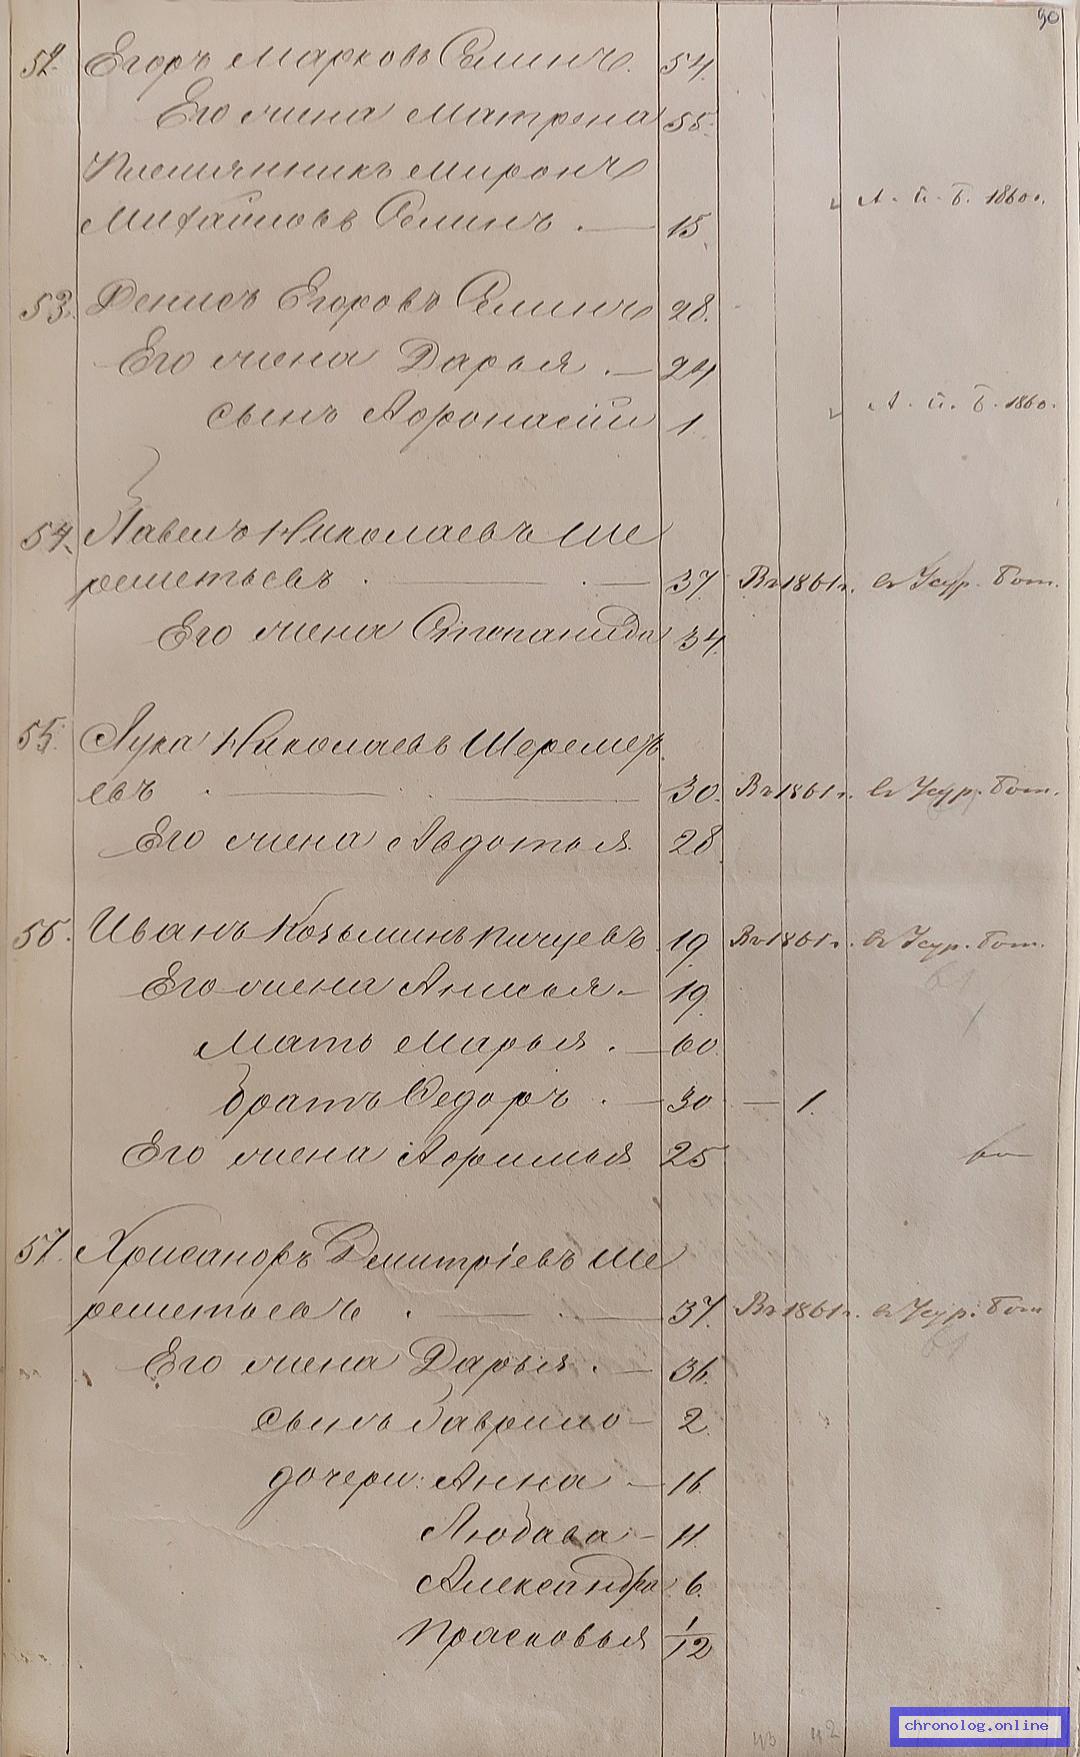 90
52. Егоръ Марковъ Селинъ. 54.
Его жена Матрена 55.
Племянникъ Миронъ
Михайловъ Селинъ . — 15. А. п. Б. 1860г.
53. Денисъ Егоровъ Селинъ 28.
Его жена Дарья . — 24
сынъ Афонасій 1. А. п. Б. 1860.
54. Павелъ Николаевъ Ше
реметьевъ . — . — 37 Въ 1861г. въ Усур. бат.
Его жена Степанида 34.
55. Лука Николаевъ Шереметь
евъ . — 30. Въ 1861г. въ Усур. бат.
Его жена Авдотья 28.
56. Иванъ Козьминъ Пичуевъ 19. Въ 1861г. въ Усур. бат.
Его жена Анисья. — 19.
Мать Марья . — 60.
Братъ Федоръ . — 30 — 1.
Его жена Афимья 25
57. Хрисанфъ Дмитріевъ Ше
реметьевъ . — . — 37. Въ 1861г. въ Усур. бат
Его жена Дарья . — 36.
сынъ Гаврило — 2.
дочери: Анна — 16.
Любава — 11.
Александра 6.
Прасковья 1/12
43 42
chronolog.online